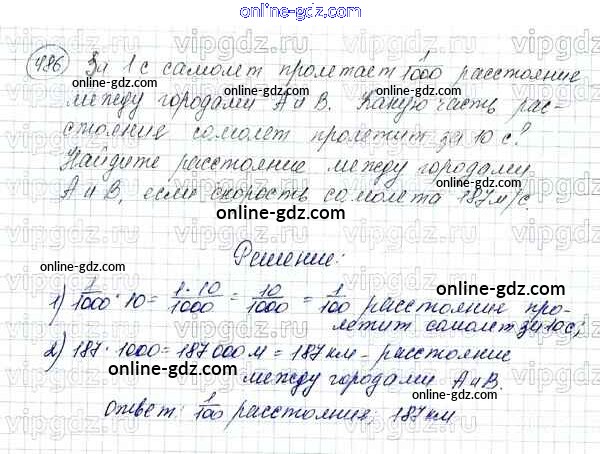 online-gdz.com
486) За 1 с самолет пролетает 1/1000 расстояние
между городами А и В. Какую часть рас-
стояния самолет пролетит за 10 с?
Найдите расстояние между городами
А и В, если скорость самолета 187 м/с.
online-gdz.com
Решение:
online-gdz.com
1) 1/1000 · 10 = 1·10/1000 = 10/1000 = 1/100 расстояние про-
летит самолет за 10 с;
online-gdz.com
2) 187 · 1000 = 187 000 м = 187 км - расстояние
online-gdz.com
между городами А и В.
Ответ: 1/100 расстояния, 187 км
online-gdz.com
vipgdz.com